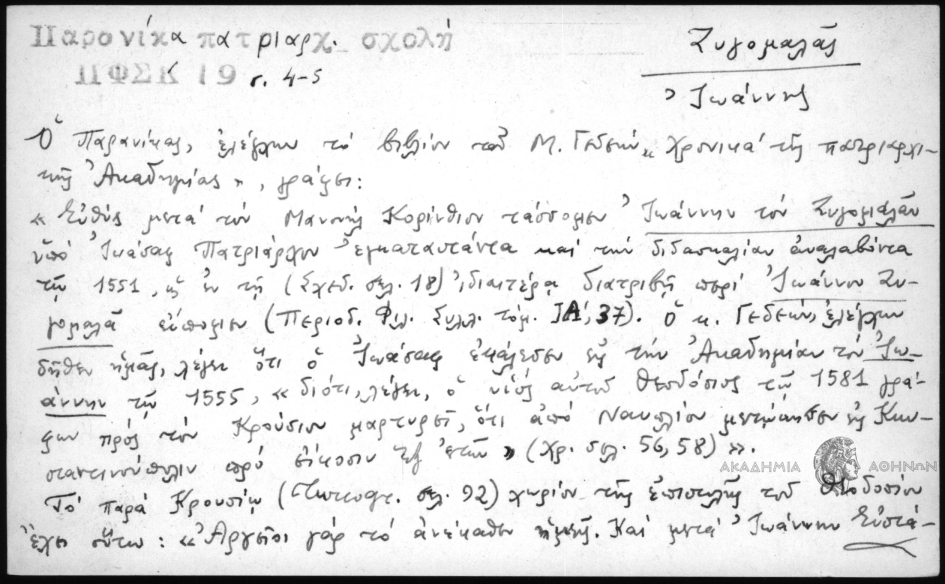 Παρανίκα πατριαρχ. σχολή
ΠΦΣΚ 19 σ. 4-5
Ζυγομαλᾶς
Ἰωάννης
Ὁ Παρανίκας, ἐλέγχων τὸ βιβλίον τοῦ Μ. Γεδεών « Χρονικά τῆς πατριαρχι-
κῆς Ἀκαδημίας », γράφει:
« Εὐθύς μετά τόν Μανουήλ Κορίνθιον τάσσομεν Ἰωάννην τόν Ζυγομαλᾶν
ὑπό Ἰωάσαφ Πατριάρχου ἐγκαταστάντα καί τήν διδασκαλίαν ἀναλαβόντα
τῷ 1551, ὡς ἐν τῇ (Σχεδ. σελ. 18) ἰδιαιτέρᾳ διατριβῇ περί Ἰωάννου Ζυ-
γομαλᾶ εἴπομεν (Περιοδ. Φιλ. Συλλ. τόμ. ΙΑ΄, 37). Ὁ κ. Γεδεών, ἐλέγχων
δῆθεν ἡμᾶς, λέγει ὅτι ὁ Ἰωάσαφ ἐκάλεσεν εἰς τήν Ἀκαδημίαν τόν Ἰω-
άννην τῷ 1555, « διότι, λέγει, ὁ υἱός αὐτοῦ Θεοδόσιος τῷ 1581 γρά-
φων πρός τόν Κρούσιον μαρτυρεῖ, ὅτι ἀπό Ναυπλίου μετῴκησεν εἰς Κων-
σταντινούπολιν πρό εἴκοσιν ἐτῶν » (Χρ. σελ. 56, 58) ».
ΑΚΑΔΗΜΙΑ ΑΘΗΝΩΝ
Τό παρά Κρουσίῳ (Turcogr. σελ. 92) χωρίον τῆς ἐπιστολῆς τοῦ Θεοδοσίου
ἔχει οὕτω : « Ἀργεῖοι γάρ τό ἀνέκαθεν ἡμεῖς. Καί μετά Ἰωάννην Εὐστά-